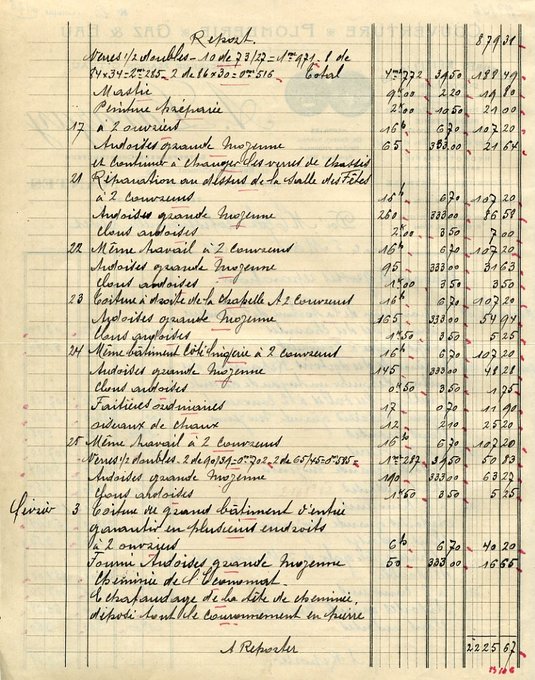 Report. 879 31
Verres 1/2 doubles - 10 de 73/27 = 1m971 - 8 de
84×34 = 2m285, 2 de 86×30 = 0m516 Total 4m772 39,50 188 49
Mastic 9k00 2 20 19 80
Peinture préparée 2k00 10 50 21 00
17 à 2 ouvriers 16h 6 70 107 20
Ardoises grande moyenne 65 333 00 21 64
et continuer à changer les verres de chassis
21 Réparation au dessus de la salle des Fêtes
à 2 couvreurs 16h 6 70 107 20
Ardoises grande moyenne 260 333 00 86 58
Clous ardoises 2k00 3 50 7 00
22 Même travail à 2 couvreurs 16h 6 70 107 20
Ardoises grande moyenne 95 333 00 31 63
Clous ardoises 1k00 3 50 3 50
23 Toiture à droite de la chapelle A 2 couvreurs 16h 6 70 107 20
Ardoises grande moyenne 165 333 00 54 94
Clous ardoises 1k50 3 50 5 25
24 Même bâtiment Côté lingerie à 2 couvreurs 16h 6 70 107 20
Ardoises grande moyenne 145 333 00 48 28
Clous ardoises 0k50 3 50 1 75
Faitières ordinaires 17 0 70 11 90
de chaux 12 2 10 25 20
25 Même travail à 2 couvreurs 16h 6 70 107 20
Verres 1/2 doubles. 2 de 90/39 = 0m702, 2 de 65/45 = 0m585 1m287 39,50 50 83
Ardoises grande moyenne 190 333 00 63 27
Clous ardoises 1k50 3 50 5 25
Février 3 Toiture du grand bâtiment d'entrée
garantir en plusieurs endroits
à 2 ouvriers 6h 6 70 40 20
Fourni Ardoises grande moyenne 50 333 00 16 65
Cheminée de l'Economat.
Echafaudage de la tête de cheminée,
déposé tout le couronnement en pierre
A Reporter 2225 67